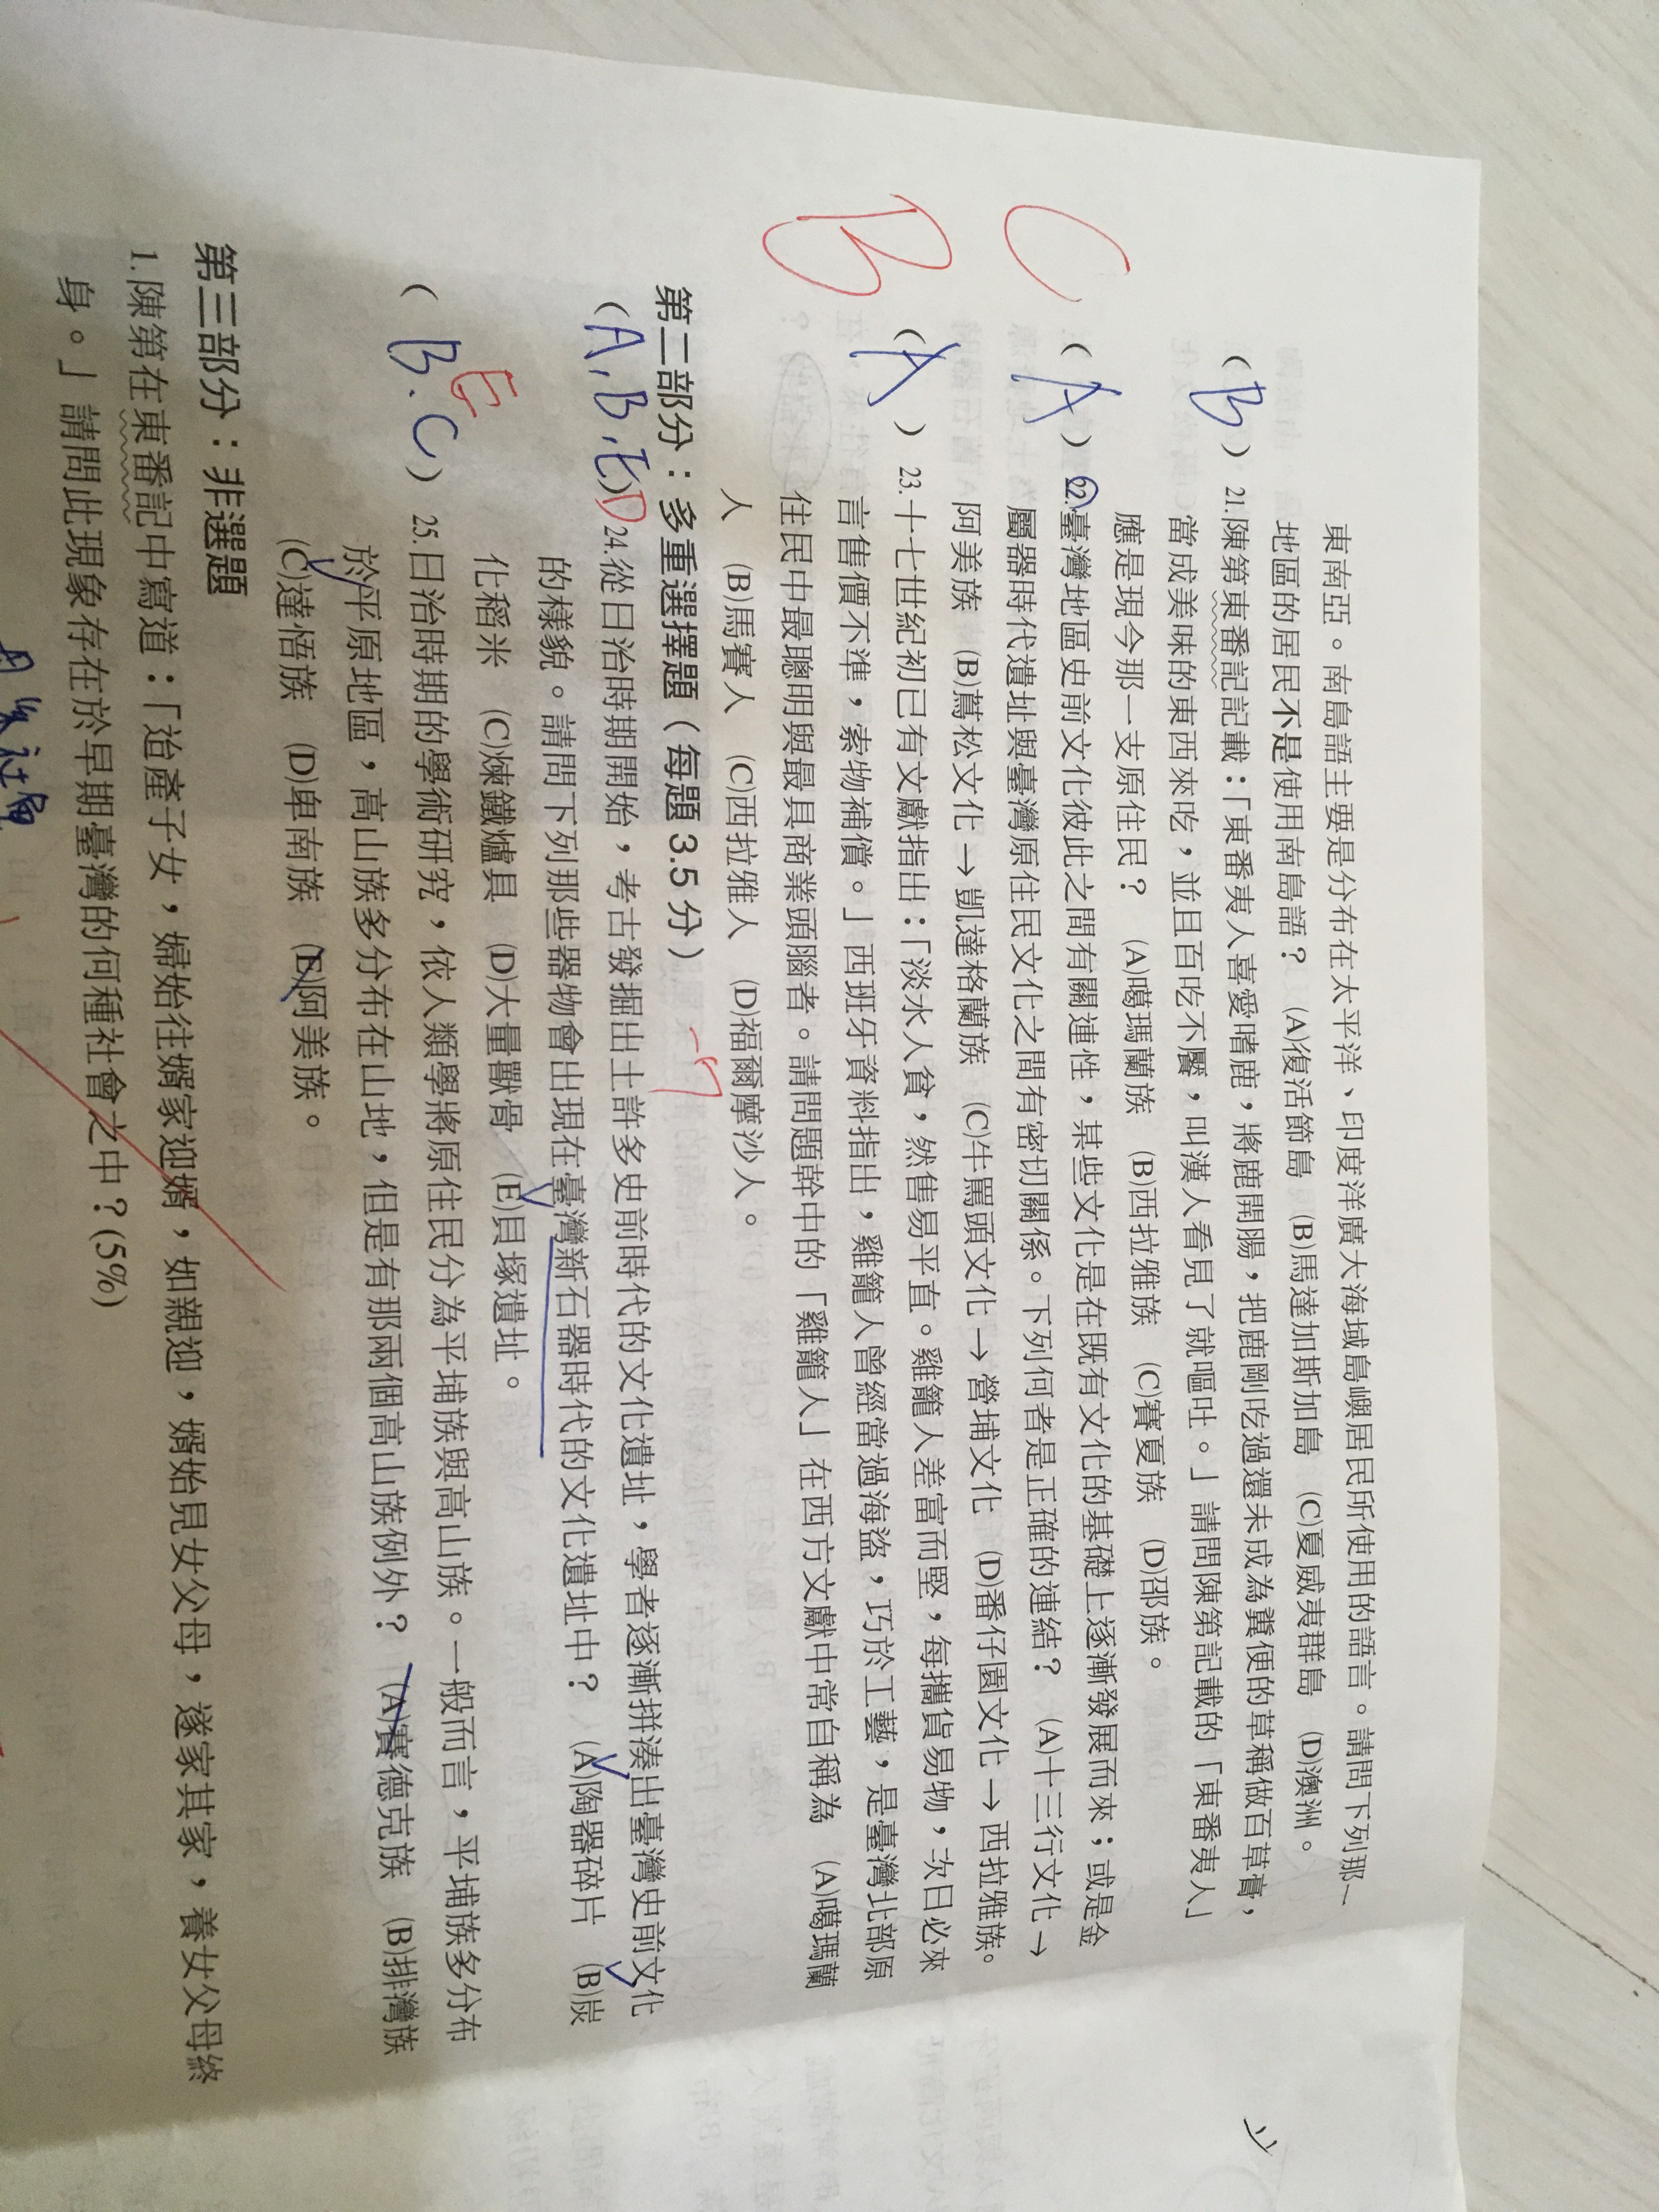 東南亞。南島語主要是分布在太平洋、印度洋廣大海域島嶼居民所使用的語言。請問下列那一
地區的居民不是使用南島語? (A)復活節島 (B)馬達加斯加島 (C)夏威夷群島 (D)澳洲。
(B) 21.陳第東番記記載:「東番夷人喜愛嗜鹿,將鹿開腸,把鹿剛吃過還未成為糞便的草稱做百草膏,
當成美味的東西來吃,並且百吃不饜,叫漢人看見了就嘔吐。」請問陳第記載的「東番夷人」
應是現今那一支原住民? (A)噶瑪蘭族 (B)西拉雅族 (C)賽夏族 (D)邵族。
C (A) 22.臺灣地區史前文化彼此之間有關連性,某些文化是在既有文化的基礎上逐漸發展而來;或是金
屬器時代遺址與臺灣原住民文化之間有密切關係。下列何者是正確的連結? (A)十三行文化→
阿美族 (B)蔦松文化→凱達格蘭族 (C)牛罵頭文化→營埔文化 (D)番仔園文化→西拉雅族。
B (A) 23.十七世紀初已有文獻指出:「淡水人貧,然售易平直。雞籠人差富而堅,每攜貨易物,次日必來
言售價不準,索物補償。」西班牙資料指出,雞籠人曾經當過海盜,巧於工藝,是臺灣北部原
住民中最聰明與最具商業頭腦者。請問題幹中的「雞籠人」在西方文獻中常自稱為 (A)噶瑪蘭
人 (B)馬賽人 (C)西拉雅人 (D)福爾摩沙人。
第二部分:多重選擇題(每題 3.5 分) -7
(A,B,E) D 24.從日治時期開始,考古發掘出土許多史前時代的文化遺址,學者逐漸拼湊出臺灣史前文化
的樣貌。請問下列那些器物會出現在臺灣新石器時代的文化遺址中? (A)陶器碎片 (B)炭
化稻米 (C)煉鐵爐具 (D)大量獸骨 (E)貝塚遺址。
(B.C) E 25.日治時期的學術研究,依人類學將原住民分為平埔族與高山族。一般而言,平埔族多分布
於平原地區,高山族多分布在山地,但是有那兩個高山族例外? (A)賽德克族 (B)排灣族
(C)達悟族 (D)卑南族 (E)阿美族。
第三部分:非選題
1.陳第在東番記中寫道:「迨產子女,婦始往婿家迎婿,如親迎,婿始見女父母,遂家其家,養女父母終
身。」請問此現象存在於早期臺灣的何種社會之中?(5%)